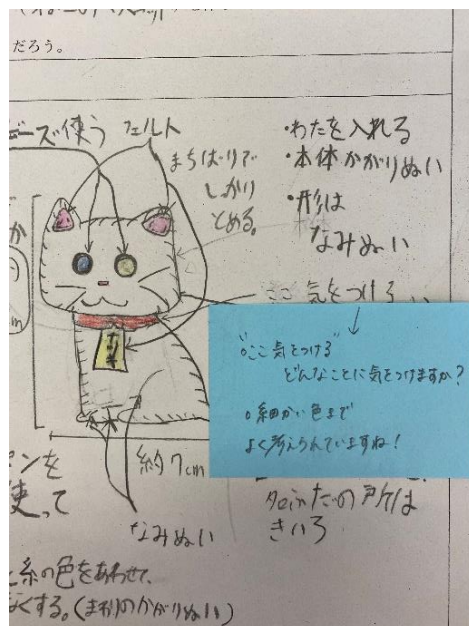 だろう。
ビーズ使う
フェルト
まちばりで
しっかり
とめる。
・わたを入れる
・本体かがりぬい
・形は
なみぬい
気をつける
"ここ気をつける"
どんなことに気をつけますか?
○細かい色まで
よく考えられていますね!
約7cm
ペンを
使って
なみぬい
きいろ
糸の色をあわせて、
くする。(まわりのかがりぬい)